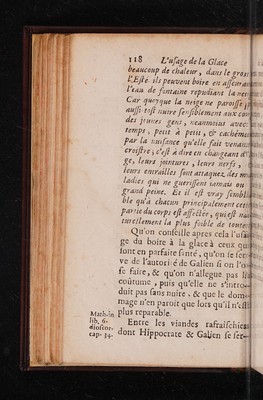 118 L'usage de la Glace
beaucoup de chaleur, dans le gros
l'Esté ils peuvent boire en asseur
l'eau de fontaine repudiant la nei
Car quoyque la neige ne paroisse
aussi-tost nuire sensiblement aux co
des jeunes gens, neanmoins avec
temps, petit à petit, & cachém
par la nuisance qu'elle fait venant
croistre, c'est à dire en changeant d'
ge, leurs jointures, leurs nerfs,
leurs entrailles sont attaquez, des ma
ladies qui ne guerissent iamais ou
grand peine. Et il est vray sembla
ble qu'à chacun principalement cet
partie du corps est affectée, qui est na
turellement la plus foible de toutes
Qu'on conseille apres cela l'usa
ge du boire à la glace à ceux qui
sont en parfaite santé, qu'on se ser
ve de l'autorité de Galien si on l'o
se faire, & qu'on n'allegue pas la
coûtume, puis qu'elle ne s'intro
duit pas sans nuire, & que le dom
mage n'en paroit que lors qu'il n'est
plus reparable.
Math. in
lib. 6.
dioscor.
cap. 34.
Entre les viandes rafraischies
dont Hippocrate & Galien se ser-